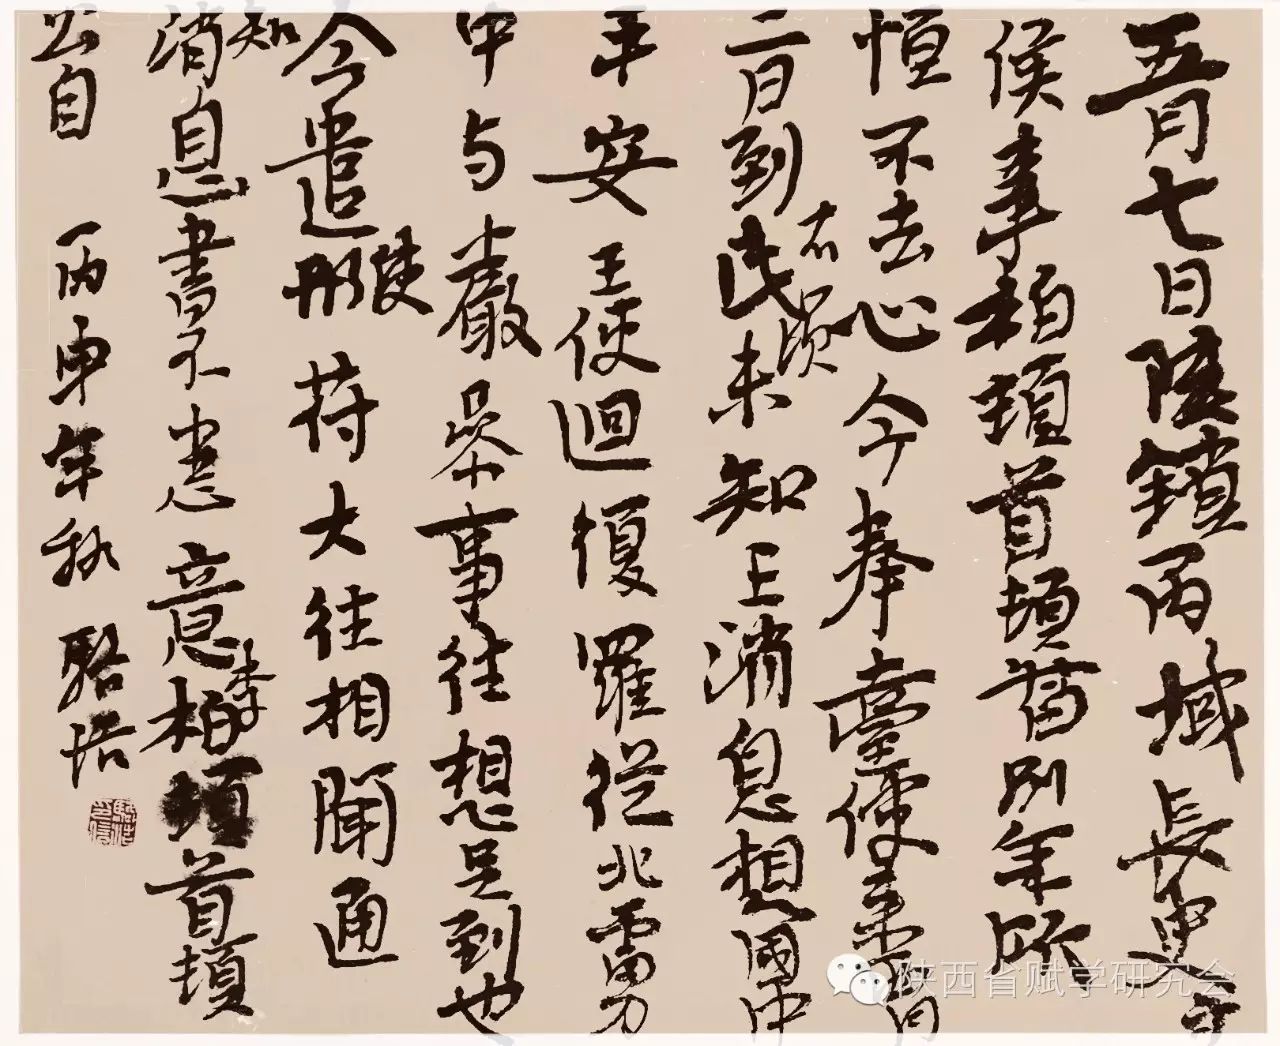 五月七日西域長史
侯李柏頓首頓別年所
恒不去心今奉臺使來
二日到此未知王消息想國中
平安王使迴復羅從北虜
中与嚴參事往想是到也
今遣使符大往相聞通
知消息書不悉意李柏頓首頓
丙申年秋
陕西省赋学研究会